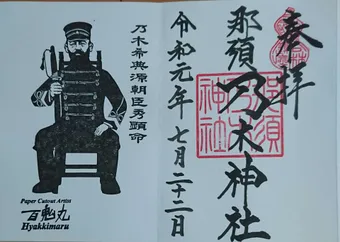 奉拝
那須乃木神社
那須
乃木
神社
令和元年七月二十二日
乃木希典源朝臣秀顕命
Paper Cutout Artist
百鬼丸
Hyakkimaru